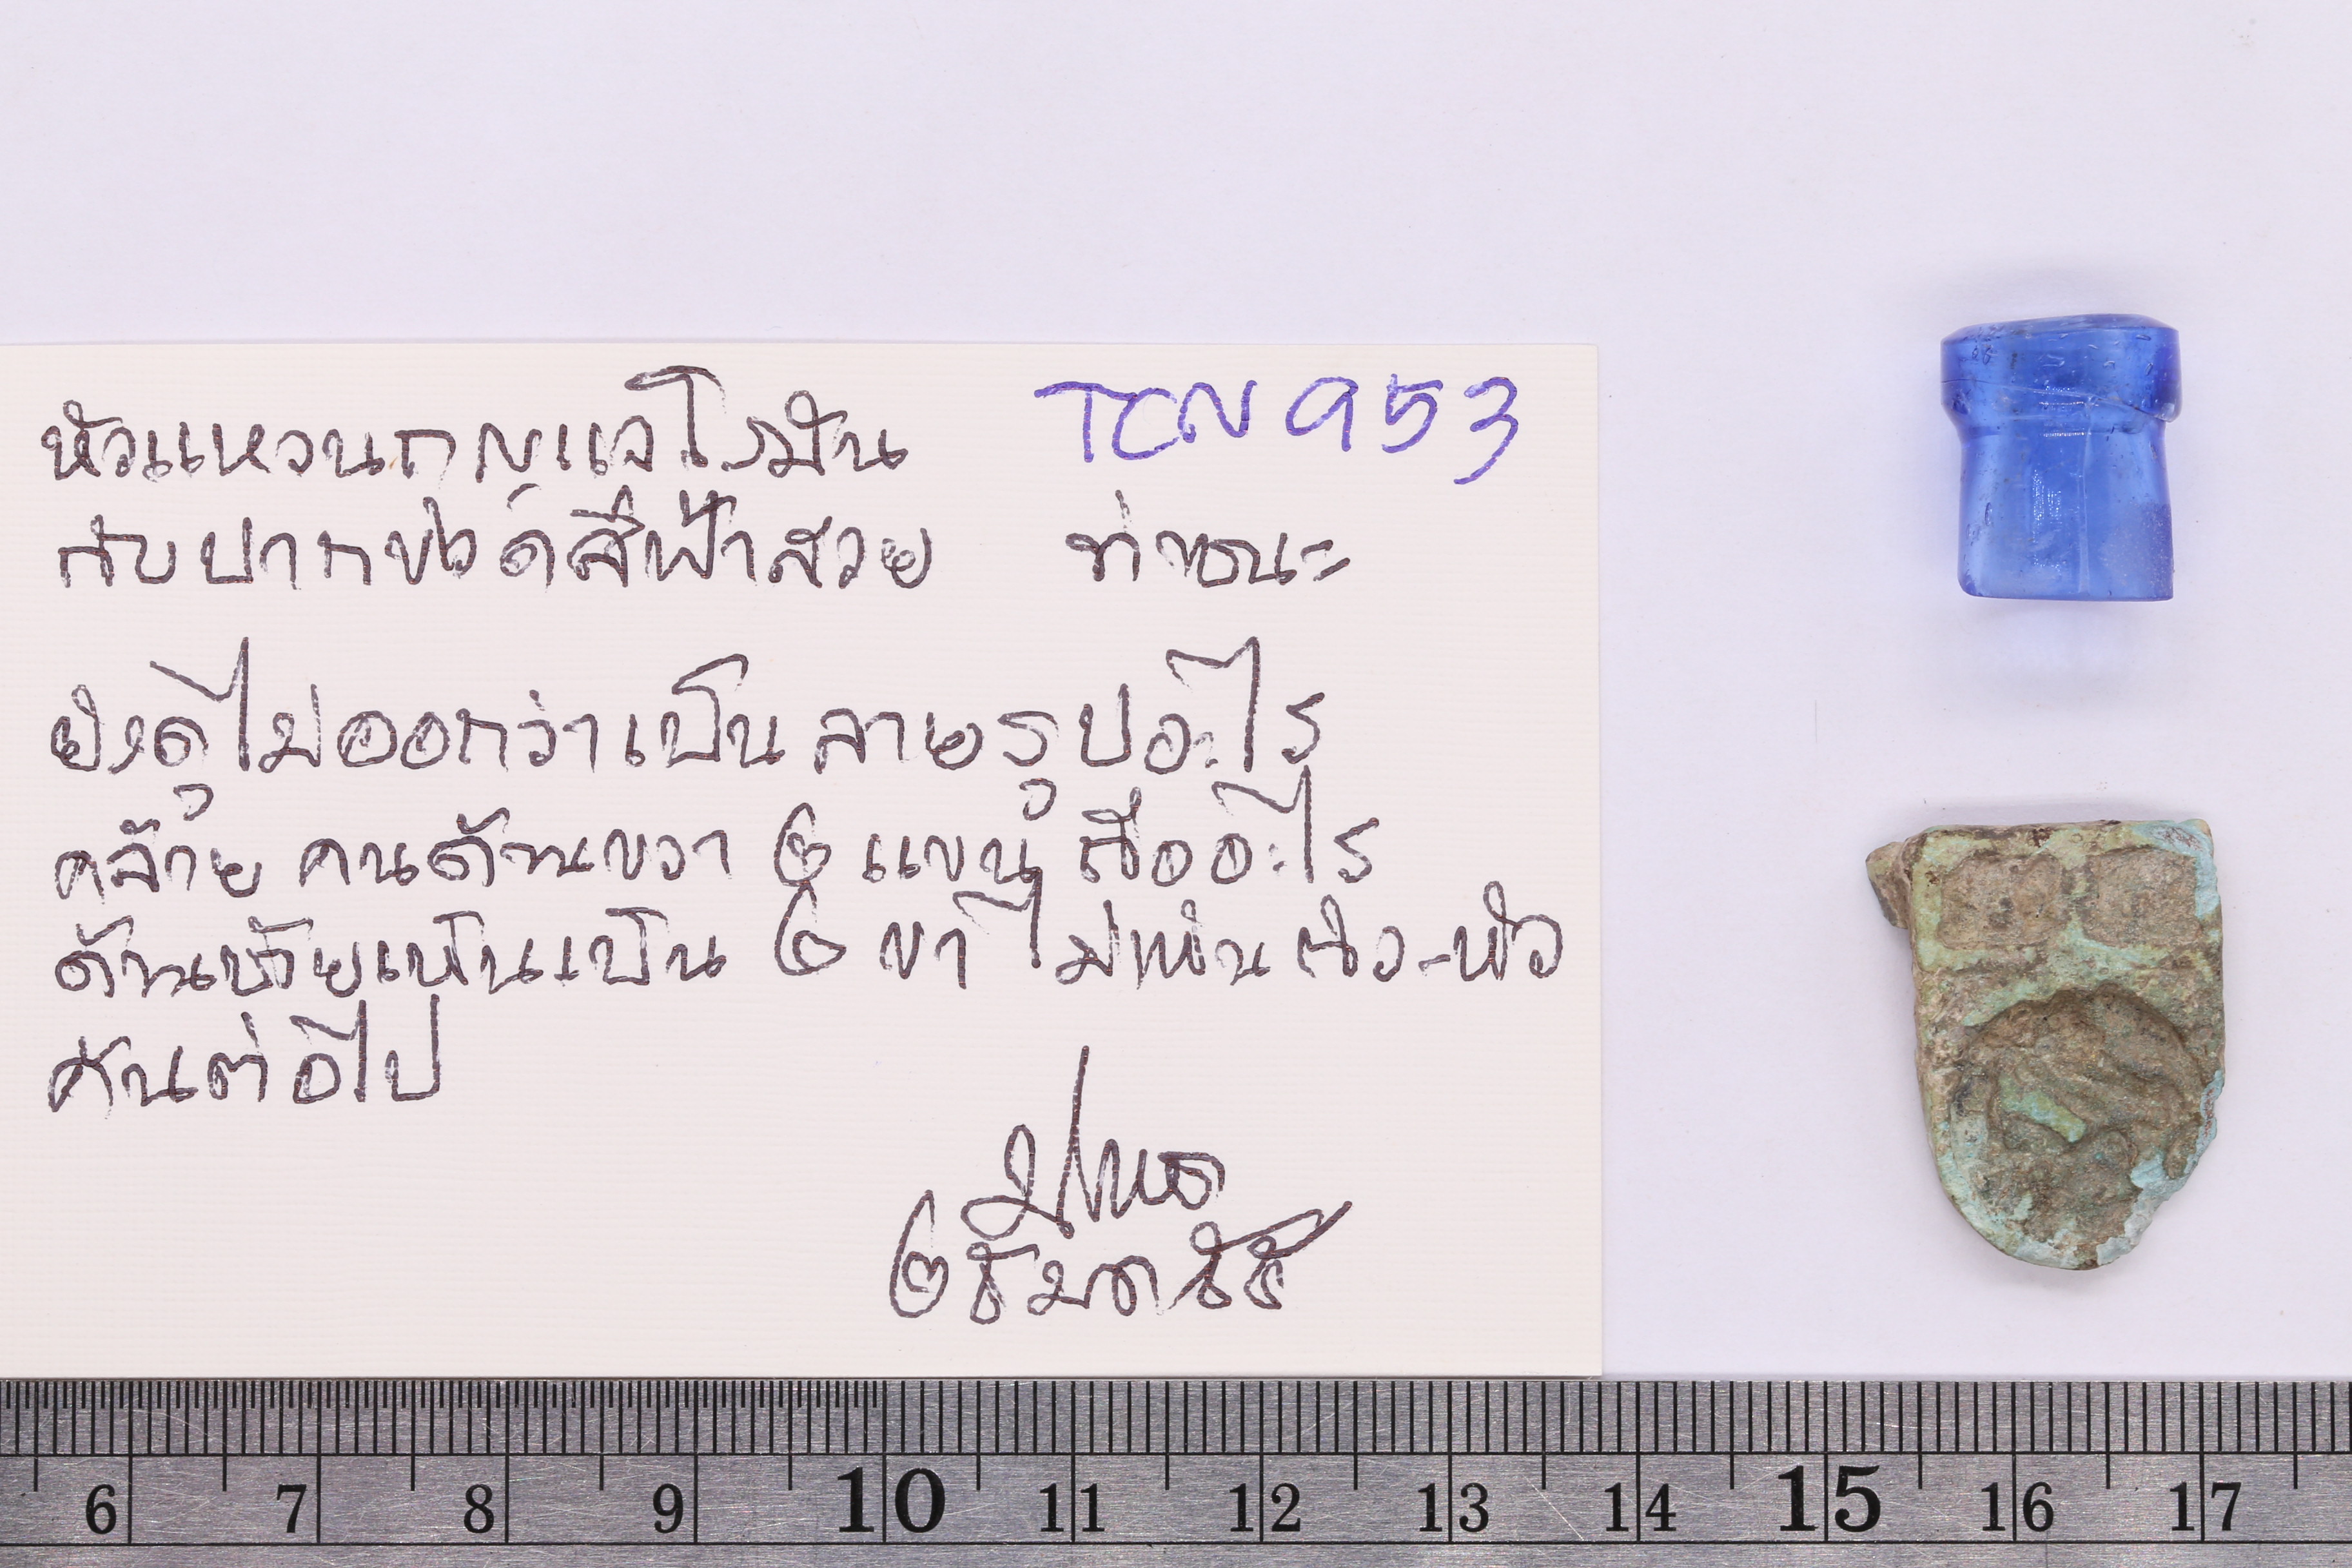 หัวแหวนกุญแจโรมัน TCN 953
กับปากขวดสีฟ้าสวย ท่าชนะ
ยังดูไม่ออกว่าเป็นลายรูปอะไร
คล้าย คนด้านขวา ๒ แขน ถืออะไร
ด้านซ้ายเห็นเป็น ๒ ขา ไม่เห็นตัว-หัว
ค้นต่อไป
๒ ธันวาค ๖๖
6 7 8 9 10 11 12 13 14 15 16 17